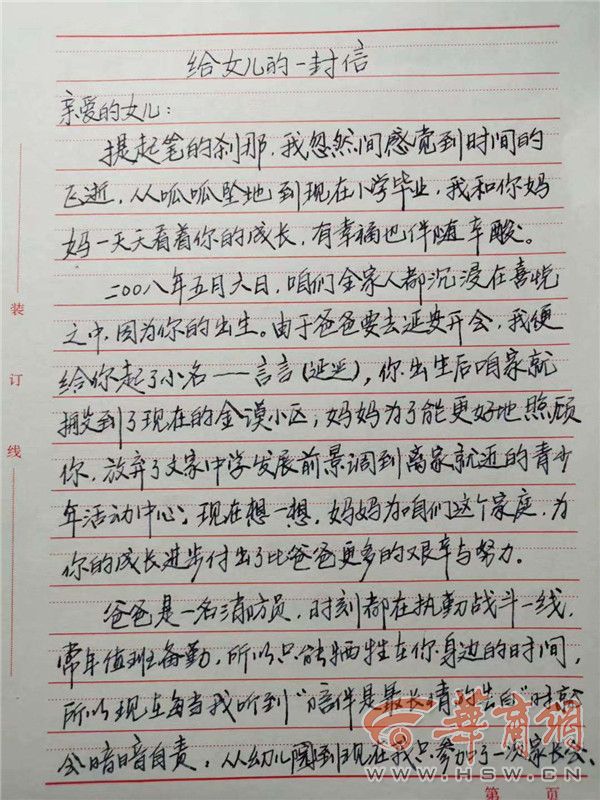 给女儿的一封信
亲爱的女儿：
提起笔的刹那，我忽然间感觉到时间的
飞逝，从呱呱坠地到现在小学毕业，我和你妈
妈一天天看着你的成长，有幸福也伴随辛酸。
二00八年五月六日，咱们全家人都沉浸在喜悦
之中，因为你的出生。由于爸爸要去延安开会，我便
给你起了小名——言言(延延)，你出生后咱家就
搬到了现在的金谟小区，妈妈为了能更好地照顾
你，放弃了文家中学发展前景调到离家就近的青少
年活动中心，现在想一想，妈妈为咱们这个家庭，为
你的成长进步付出了比爸爸更多的艰辛与努力。
爸爸是一名消防员，时刻都在执勤战斗一线，
常年值班备勤，所以只能牺牲在你身边的时间，
所以现在每当我听到“陪伴是最长情的告白”时都
会暗暗自责，从幼儿园到现在我只参加了一次家长会、
装
订
线
华商网
WWW.HSW.CN
第 页